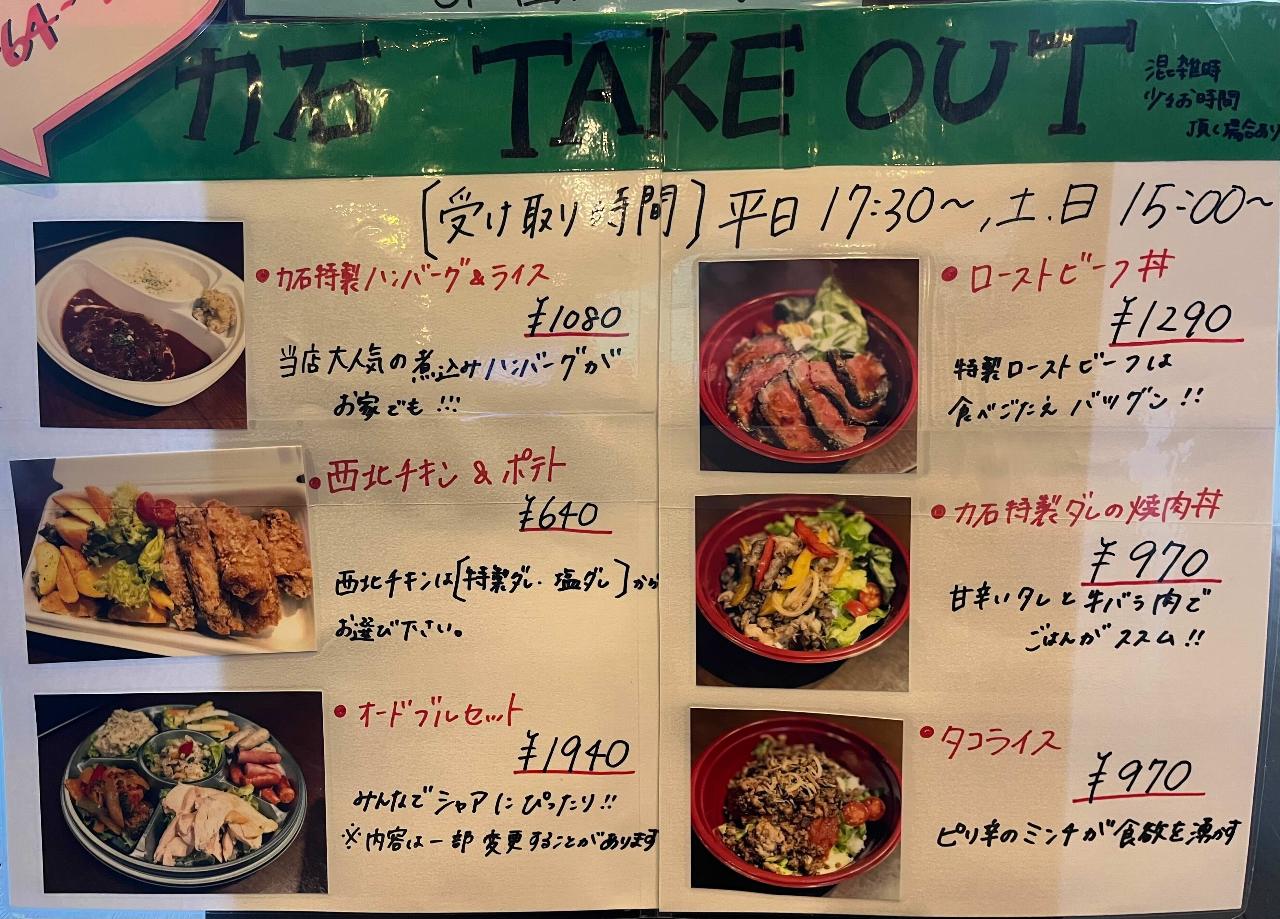 64-
力石 TAKE OUT
混雑時
少々お時間
頂く場合あり
[受け取り時間] 平日 17:30〜, 土.日 15:00〜
・力石特製ハンバーグ&ライス
¥1080
当店大人気の煮込みハンバーグが
お家でも!!!
・西北チキン & ポテト
¥640
西北チキンは[特製ダレ・塩ダレ]から
お選び下さい。
・オードブルセット
¥1940
みんなでシェアにぴったり!!
※内容は一部変更することがあります
・ローストビーフ丼
¥1290
特製ローストビーフは
食べごたえバツグン!!
・力石特製ダレの焼肉丼
¥970
甘辛いタレと牛バラ肉で
ごはんがススム!!
・タコライス
¥970
ピリ辛のミンチが食欲を湧かす